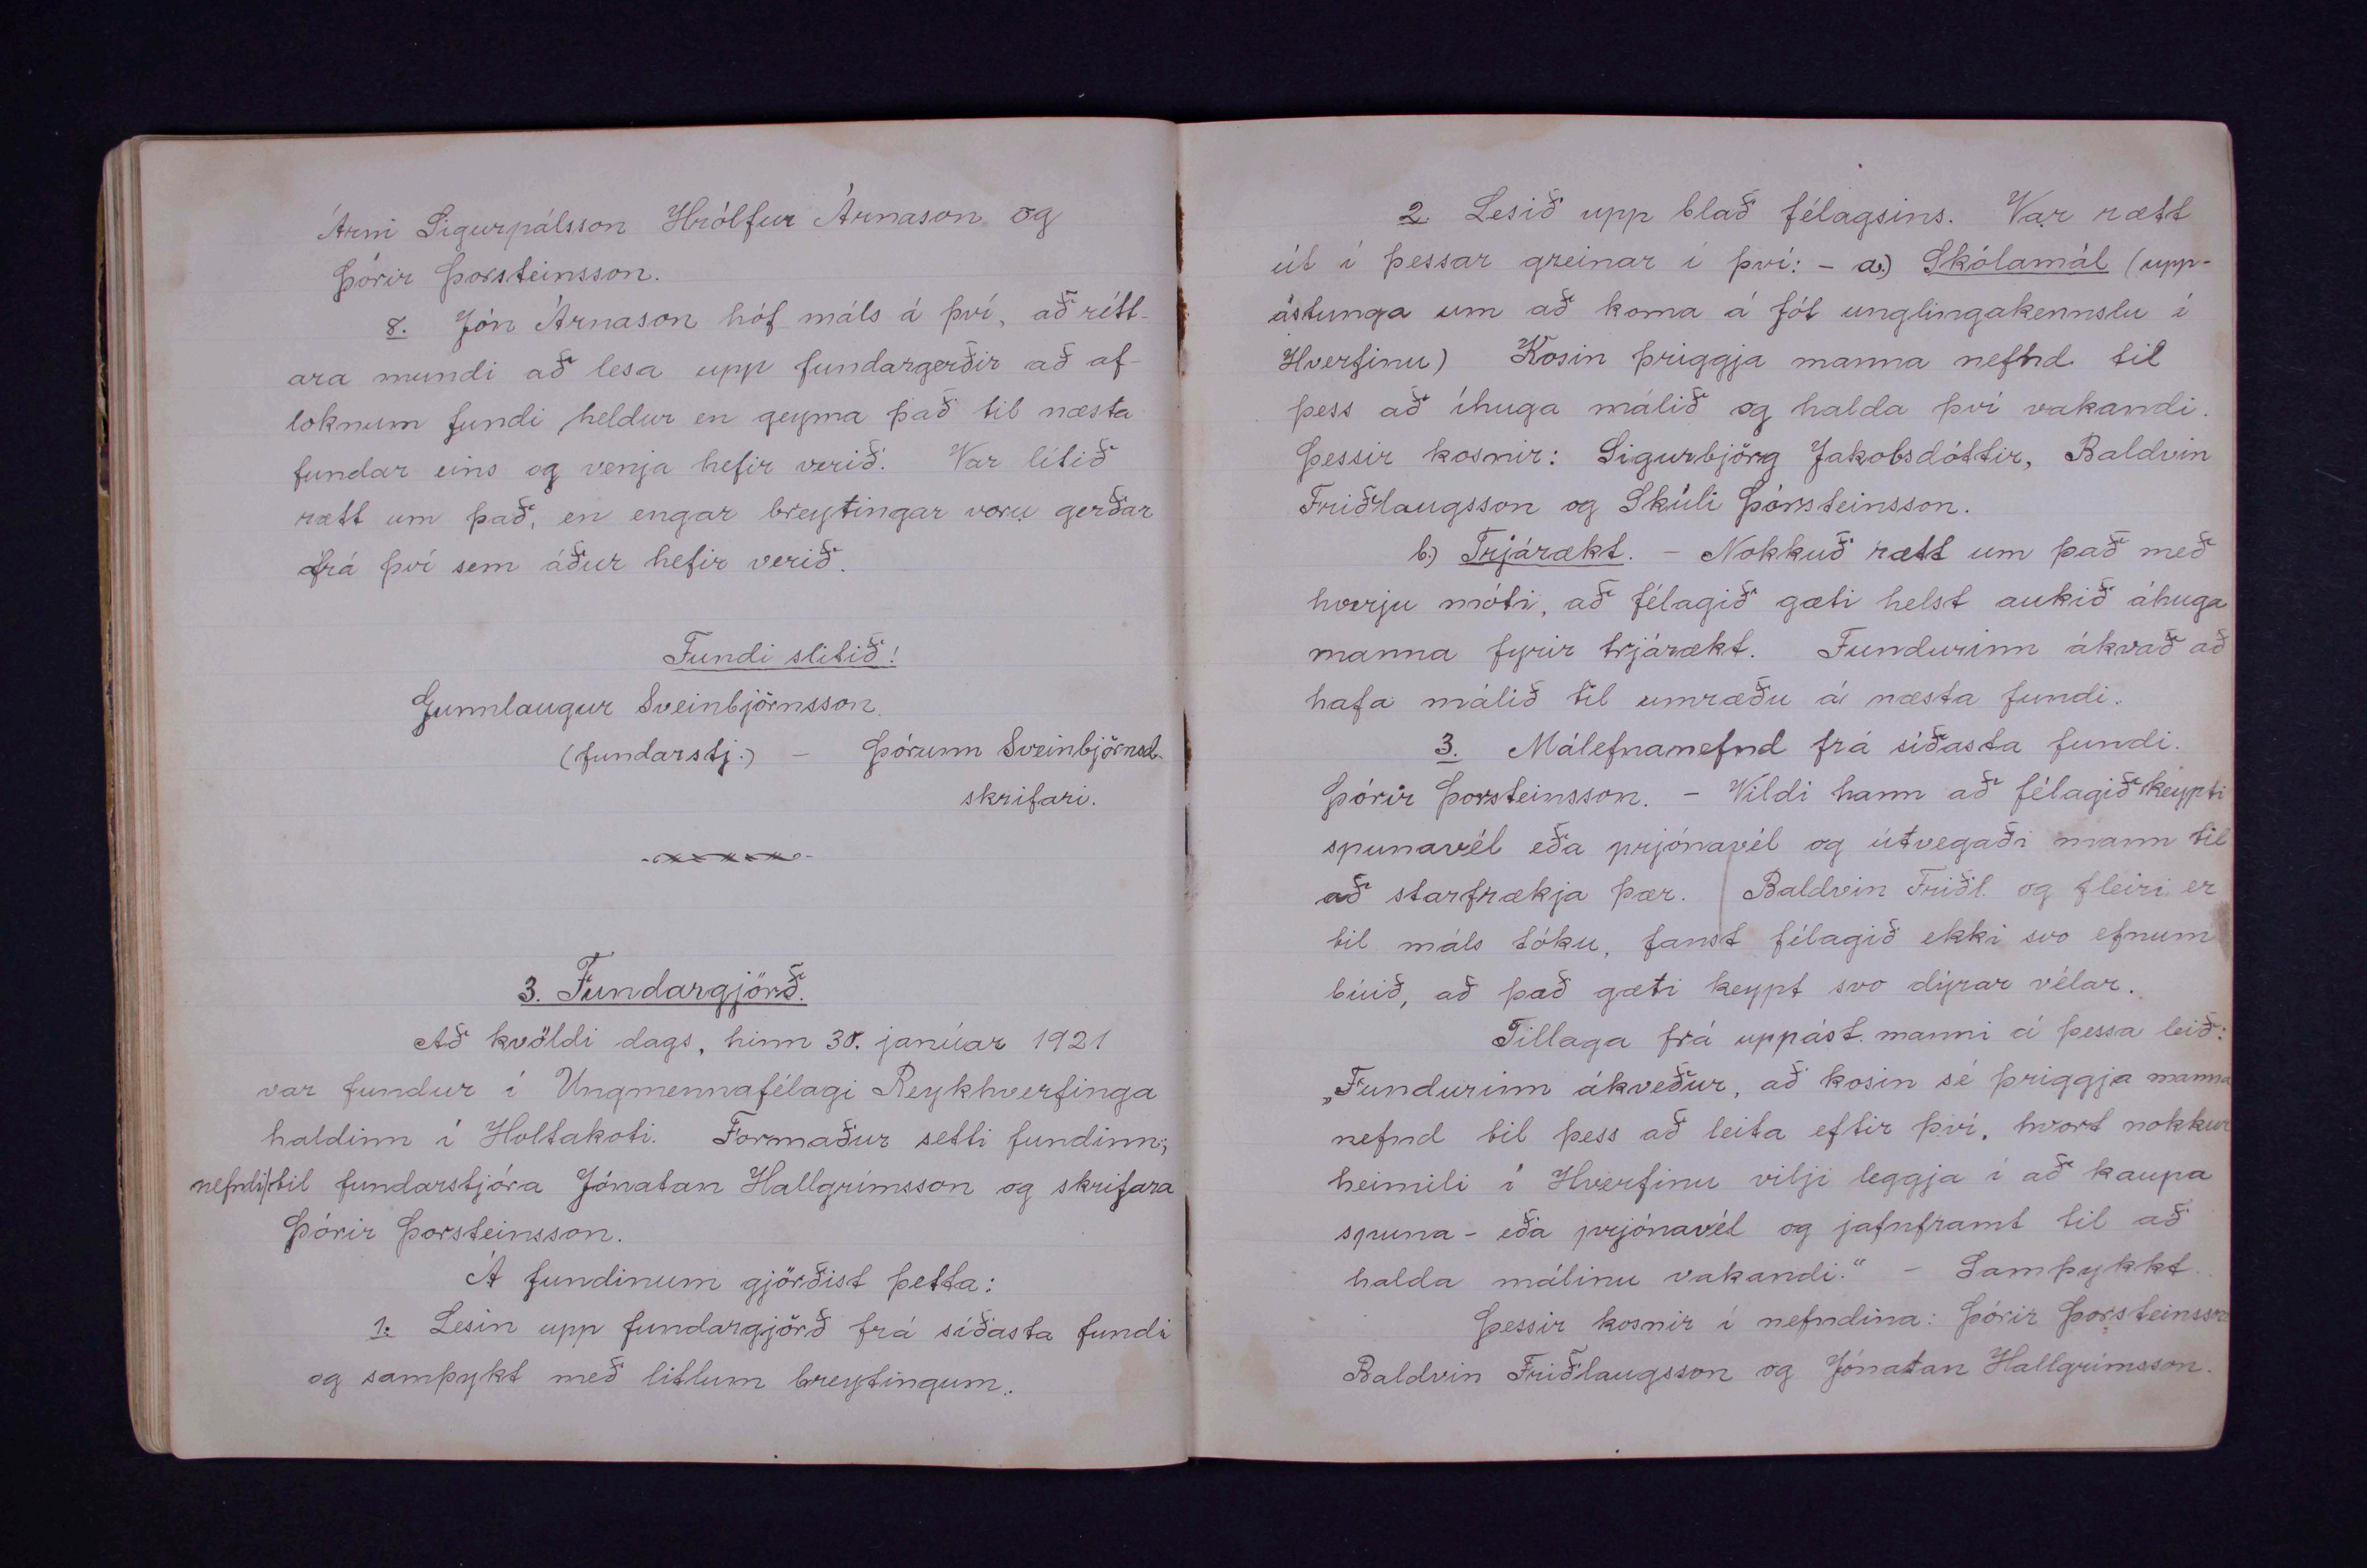 Árni Sigurpálsson Hrólfur Árnason og
Þórir Þorsteinsson.
8. Jón Árnason hóf máls á því, að rétt-
ara mundi að lesa upp fundargerðir að af-
loknum fundi heldur en geyma það til næsta
fundar eins og venja hefir verið. Var lítið
rætt um það, en engar breytingar voru gerðar
frá því sem áður hefir verið.
Fundi slitið!
Gunnlaugur Sveinbjörnsson.
(fundarstj.) - Þórunn Sveinbjörnsd.
skrifari.
3. Fundargjörð.
Að kvöldi dags, hinn 30. janúar 1921
var fundur í Ungmennafélagi Reykhverfinga
haldinn í Holtakoti. Formaður setti fundinn,
nefndi til fundarstjóra Jónatan Hallgrímsson og skrifara
Þórir Þorsteinsson.
Á fundinum gjörðist þetta:
1. Lesin upp fundargjörð frá síðasta fundi
og samþykt með litlum breytingum.
2. Lesið upp blað félagsins. Var rætt
út í þessar greinar í því: - a.) Skólamál (upp-
ástunga um að koma á fót unglingakennslu í
Hverfinu) Kosin þriggja manna nefnd til
þess að íhuga málið og halda því vakandi.
Þessir kosnir: Sigurbjörg Jakobsdóttir, Baldvin
Friðlaugsson og Skúli Þorsteinsson.
b.) Trjárækt. - Nokkuð rætt um það með
hverju móti, að félagið gæti helst aukið áhuga
manna fyrir trjárækt. Fundurinn ákvað að
hafa málið til umræðu á næsta fundi.
3. Málefnanefnd frá síðasta fundi.
Þórir Þorsteinsson. - Vildi hann að félagið keypti
spunavél eða prjónavél og útvegaði mann til
að starfrækja þær. Baldvin Friðl. og fleiri er
til máls tóku, fanst félagið ekki svo efnum
búið, að það gæti keypt svo dýrar vélar.
Tillaga frá uppást. manni á þessa leið:
„Fundurinn ákveður, að kosin sé þriggja manna
nefnd til þess að leita eftir því, hvort nokkur
heimili í Hverfinu vilji leggja í að kaupa
spuna - eða prjónavél og jafnframt til að
halda málinu vakandi." - Samþykkt.
Þessir kosnir í nefndina: Þórir Þorsteinsson
Baldvin Friðlaugsson og Jónatan Hallgrímsson.